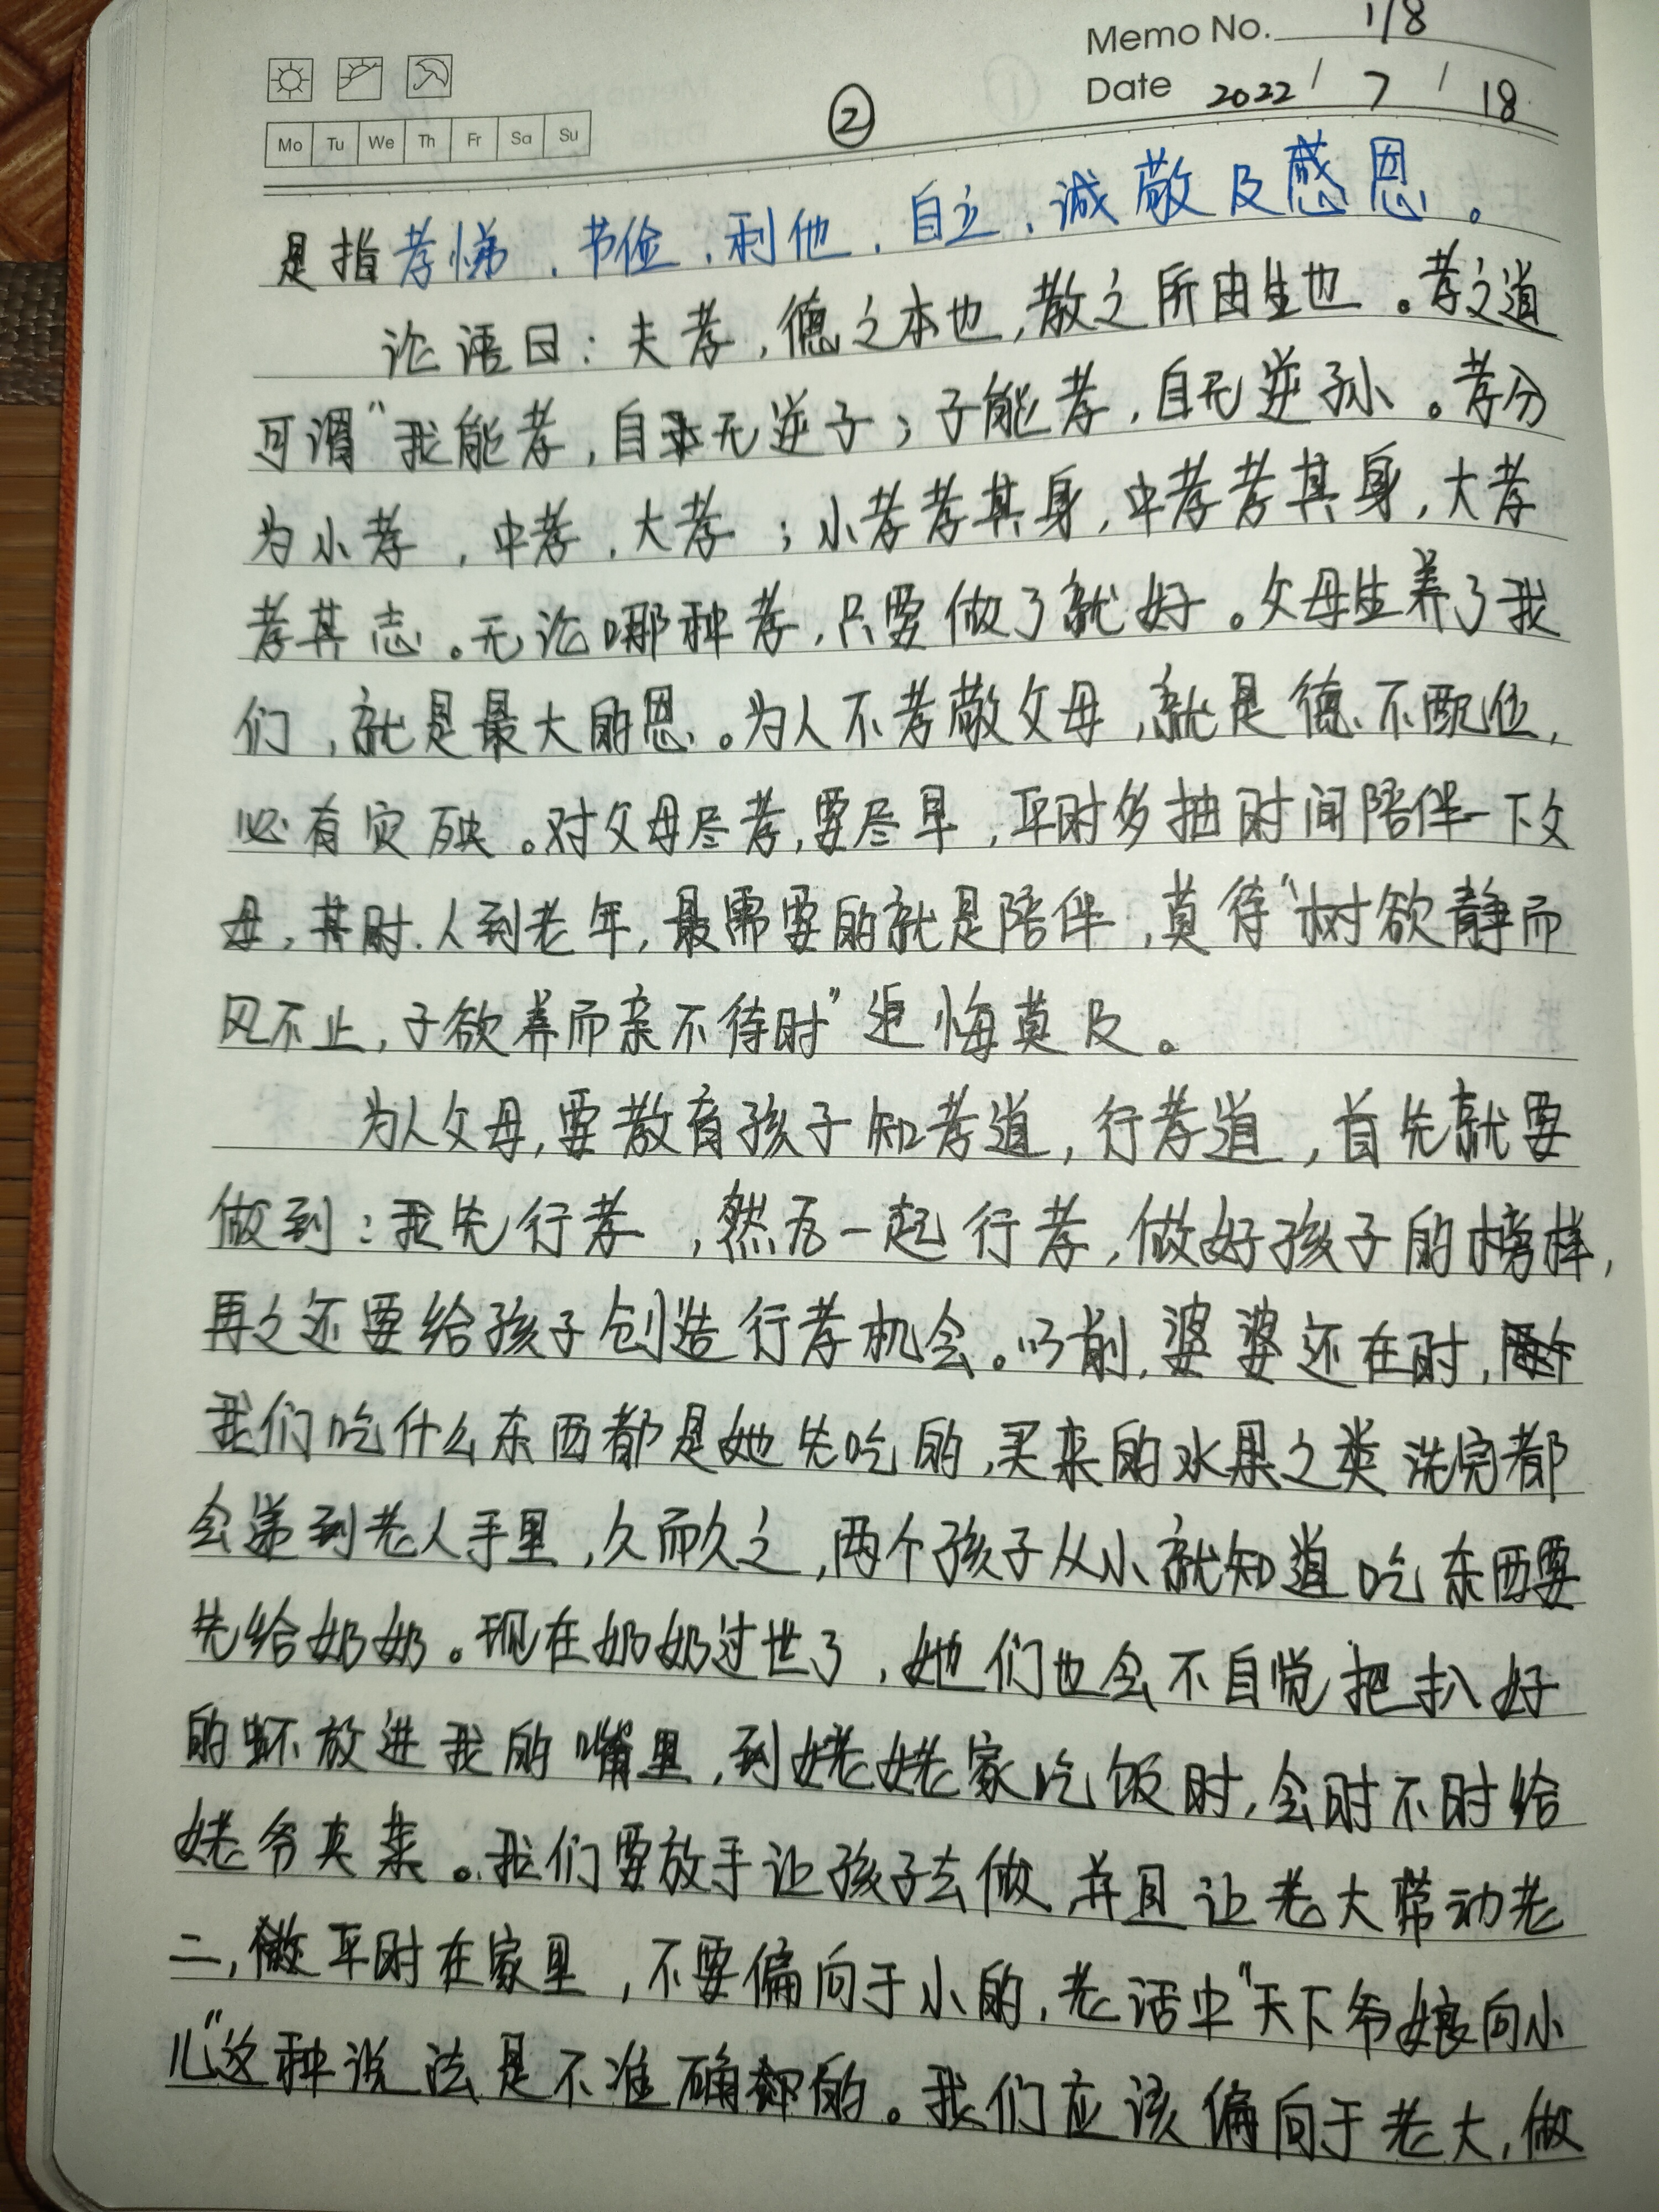 Memo No. 1/8
Mo Tu We Th Fr Sa Su
②
Date 2022 / 7 / 18
是指孝悌、书俭、利他、自立、诚敬及感恩。
论语曰：夫孝，德之本也，教之所由生也。孝之道
可谓“我能孝，自无逆子；子能孝，自无逆孙。孝分
为小孝，中孝，大孝；小孝孝其身，中孝孝其身，大孝
孝其志。无论哪种孝，只要做了就好。父母生养了我
们，就是最大的恩。为人不孝敬父母，就是德不配位，
必有灾殃。对父母尽孝，要尽早，平时多抽时间陪伴一下父
母，其时，人到老年，最需要的就是陪伴，莫待“树欲静而
风不止，子欲养而亲不待时”追悔莫及。
为人父母，要教育孩子知孝道，行孝道，首先就要
做到：我先行孝，然后一起行孝，做好孩子的榜样，
再之还要给孩子创造行孝机会。以前，婆婆还在时，
我们吃什么东西都是她先吃的，买来的水果之类洗完都
会递到老人手里，久而久之，两个孩子从小就知道吃东西要
先给奶奶。现在奶奶过世了，她们也会不自觉把扒好
的虾放进我的嘴里，到姥姥家吃饭时，会时不时给
姥爷夹菜。我们要放手让孩子去做，并且让老大带动老
二，做平时在家里，不要偏向于小的，老话中“天下爷娘向小
儿”这种说法是不准确的。我们应该偏向于老大，做